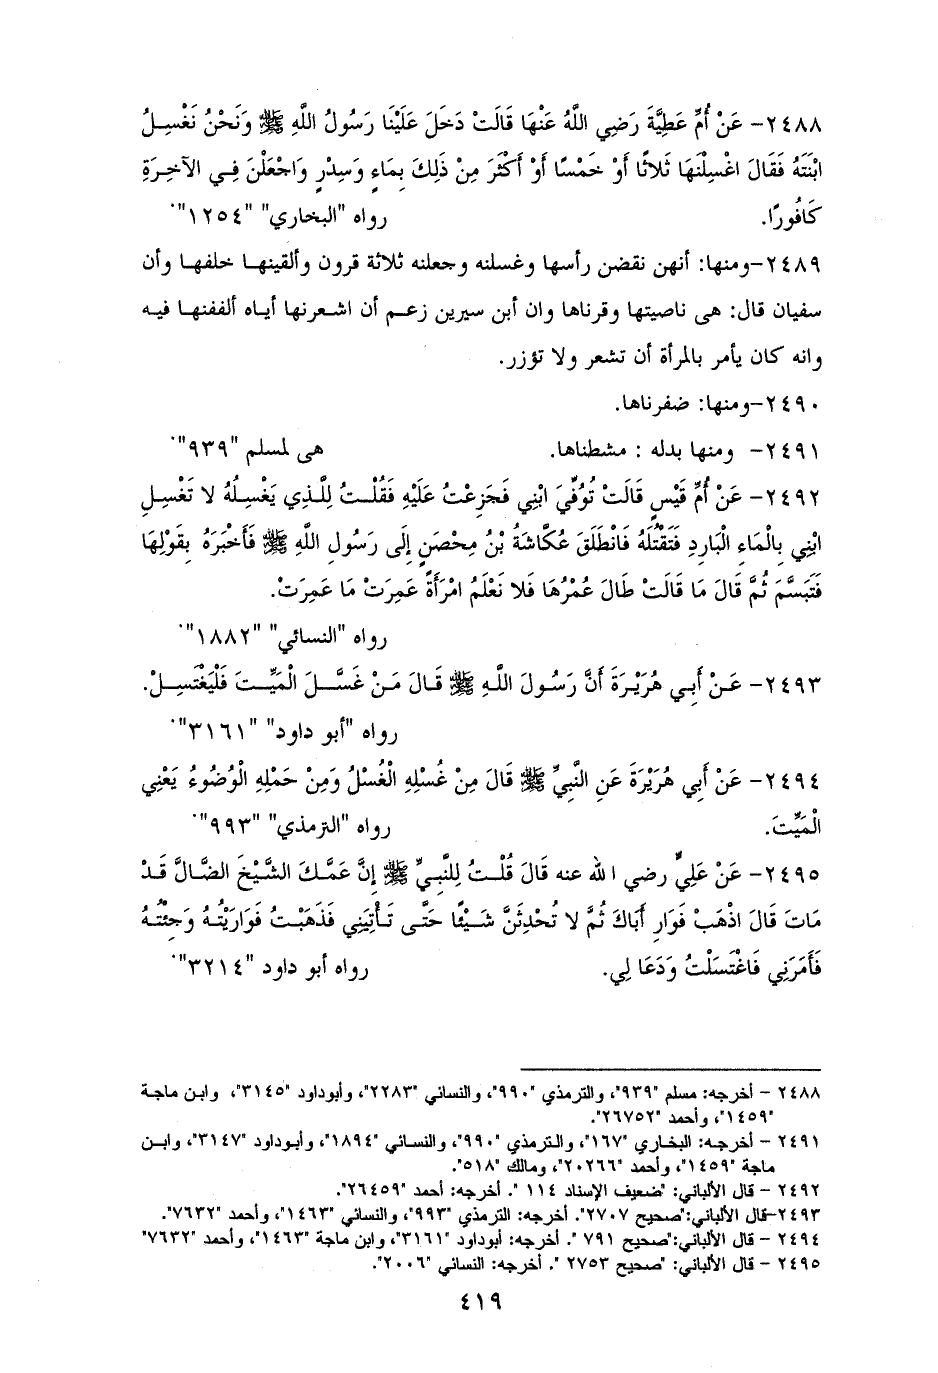 ٢٤٨٨- عَنْ أُمِّ عَطِيَّةَ رَضِي اللَّهُ عَنْهَا قَالَتْ دَخَلَ عَلَيْنَا رَسُولُ اللَّهِ ﷺ وَنَحْنُ نَغْسِلُ
ابْنَتَهُ فَقَالَ اغْسِلْنَهَا ثَلاثًا أَوْ خَمْسًا أَوْ أَكْثَرَ مِنْ ذَلِكَ بِمَاءٍ وَسِدْرٍ وَاجْعَلْنَ فِي الآخِرَةِ
كَافُورًا. رواه "البخاري" "١٢٥٤".
٢٤٨٩-ومنها: أنهن نقضن رأسها وغسلنه وجعلنه ثلاثة قرون وألقينها خلفها وأن
سفيان قال: هى ناصيتها وقرناها وان أبن سيرين زعم أن اشعرنها أياه ألففنها فيه
وانه كان يأمر بالمرأة أن تشعر ولا تؤزر.
٢٤٩٠-ومنها: ضفرناها.
٢٤٩١- ومنها بدله : مشطناها. هى لمسلم "٩٣٩".
٢٤٩٢- عَنْ أُمِّ قَيْسٍ قَالَتْ تُوُفِّيَ ابْنِي فَجَزِعْتُ عَلَيْهِ فَقُلْتُ لِلَّذِي يَغْسِلُهُ لا تَغْسِلِ
ابْنِي بِالْمَاءِ الْبَارِدِ فَتَقْتُلَهُ فَانْطَلَقَ عُكَّاشَةُ بْنُ مِحْصَنٍ إِلَى رَسُولِ اللَّهِ ﷺ فَأَخْبَرَهُ بِقَوْلِهَا
فَتَبَسَّمَ ثُمَّ قَالَ مَا قَالَتْ طَالَ عُمْرُهَا فَلا نَعْلَمُ امْرَأَةً عَمِرَتْ مَا عَمِرَتْ.
رواه "النسائي" "١٨٨٢".
٢٤٩٣- عَنْ أَبِي هُرَيْرَةَ أَنَّ رَسُولَ اللَّهِ ﷺ قَالَ مَنْ غَسَّلَ الْمَيِّتَ فَلْيَغْتَسِلْ.
رواه "أبو داود" "٣١٦١".
٢٤٩٤- عَنْ أَبِي هُرَيْرَةَ عَنِ النَّبِيِّ ﷺ قَالَ مِنْ غُسْلِهِ الْغُسْلُ وَمِنْ حَمْلِهِ الْوُضُوءُ يَعْنِي
الْمَيِّتَ. رواه "الترمذي" "٩٩٣".
٢٤٩٥- عَنْ عَلِيٍّ رضي الله عنه قَالَ قُلْتُ لِلنَّبِيِّ ﷺ إِنَّ عَمَّكَ الشَّيْخَ الضَّالَّ قَدْ
مَاتَ قَالَ اذْهَبْ فَوَارِ أَبَاكَ ثُمَّ لا تُحْدِثَنَّ شَيْئًا حَتَّى تَأْتِيَنِي فَذَهَبْتُ فَوَارَيْتُهُ وَجِئْتُهُ
فَأَمَرَنِي فَاغْتَسَلْتُ وَدَعَا لِي. رواه أبو داود "٣٢١٤".
٢٤٨٨ - أخرجه: مسلم "٩٣٩"، والترمذي "٩٩٠"، والنسائي "٢٢٨٣"، وأبوداود "٣١٤٥"، وابن ماجة
"١٤٥٩"، وأحمد "٢٦٧٥٢".
٢٤٩١ - أخرجه: البخاري "١٦٧"، والترمذي "٩٩٠"، والنسائي "١٨٩٤"، وأبوداود "٣١٤٧"، وابن
ماجة "١٤٥٩"، وأحمد "٢٠٢٦٦"، ومالك "٥١٨".
٢٤٩٢ - قال الألباني: "ضعيف الإسناد ١١٤ ". أخرجه: أحمد "٢٦٤٥٩".
٢٤٩٣-قال الألباني:"صحيح ٢٧٠٧". أخرجه: الترمذي "٩٩٣"، والنسائي "١٤٦٣"، وأحمد "٧٦٣٢".
٢٤٩٤ - قال الألباني:"صحيح ٧٩١ ". أخرجه: أبوداود "٣١٦١"، وابن ماجة "١٤٦٣"، وأحمد "٧٦٣٢"
٢٤٩٥ - قال الألباني: "صحيح ٢٧٥٣ ". أخرجه: النسائي "٢٠٠٦".
٤١٩